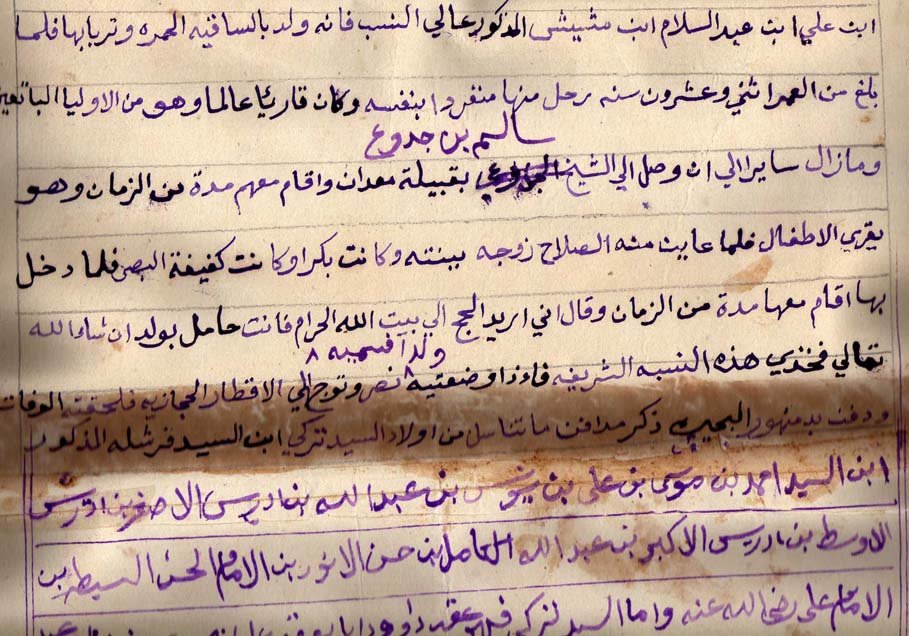 ابن علي ابن عبد السلام ابن مشيش المذكور عالي النسب فانه ولد بالساقيه الحمره وتربا بها فلما
بلغ من العمر اثني وعشرون سنه رحل منها منفردا بنفسه وكان قاريًا عالما وهو من الاوليا
سالم بن جدوع
ومازال سايرا الي ان وصل الي الشيخ بقبيلة معدان واقام معهم مدة من الزمان وهو
يقري الاطفال فلما عاين منه الصلاح زوجه ببنته وكانت بكرا وكانت كفيفة البصر فلما دخل
بها اقام معها مدة من الزمان وقال اني اريد الحج الي بيت الله الحرام فانت حامل بولد ان شاء الله
ولدا فسميه ٨
تعالي فخذي هذه النسبه الشريفه فاءذا وضعتيه نصر وتوجه الي الاقطار الحجازيه فلحقته الوفات
ودفن بدمنهور البحيره ذكر مدافن ما تناسل من اولاد السيد تركي ابن السيد فرشله المذكور
ابن السيد احمد بن موسى بن علي بن يونس بن عبد الله بن ادريس الاصغر بن ادرس
الاوسط بن ادريس الاكبر بن عبد الله الكامل بن حسن الانور بن الامام الحسن السبط بن
الامام علي رضي الله عنه واما السيد تركي